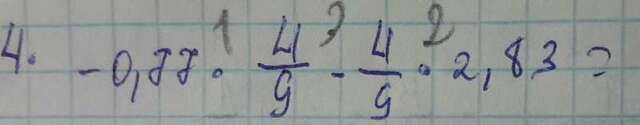 4. -0,77 ¹· 4/9 ³- 4/9 ²· 2,83 =